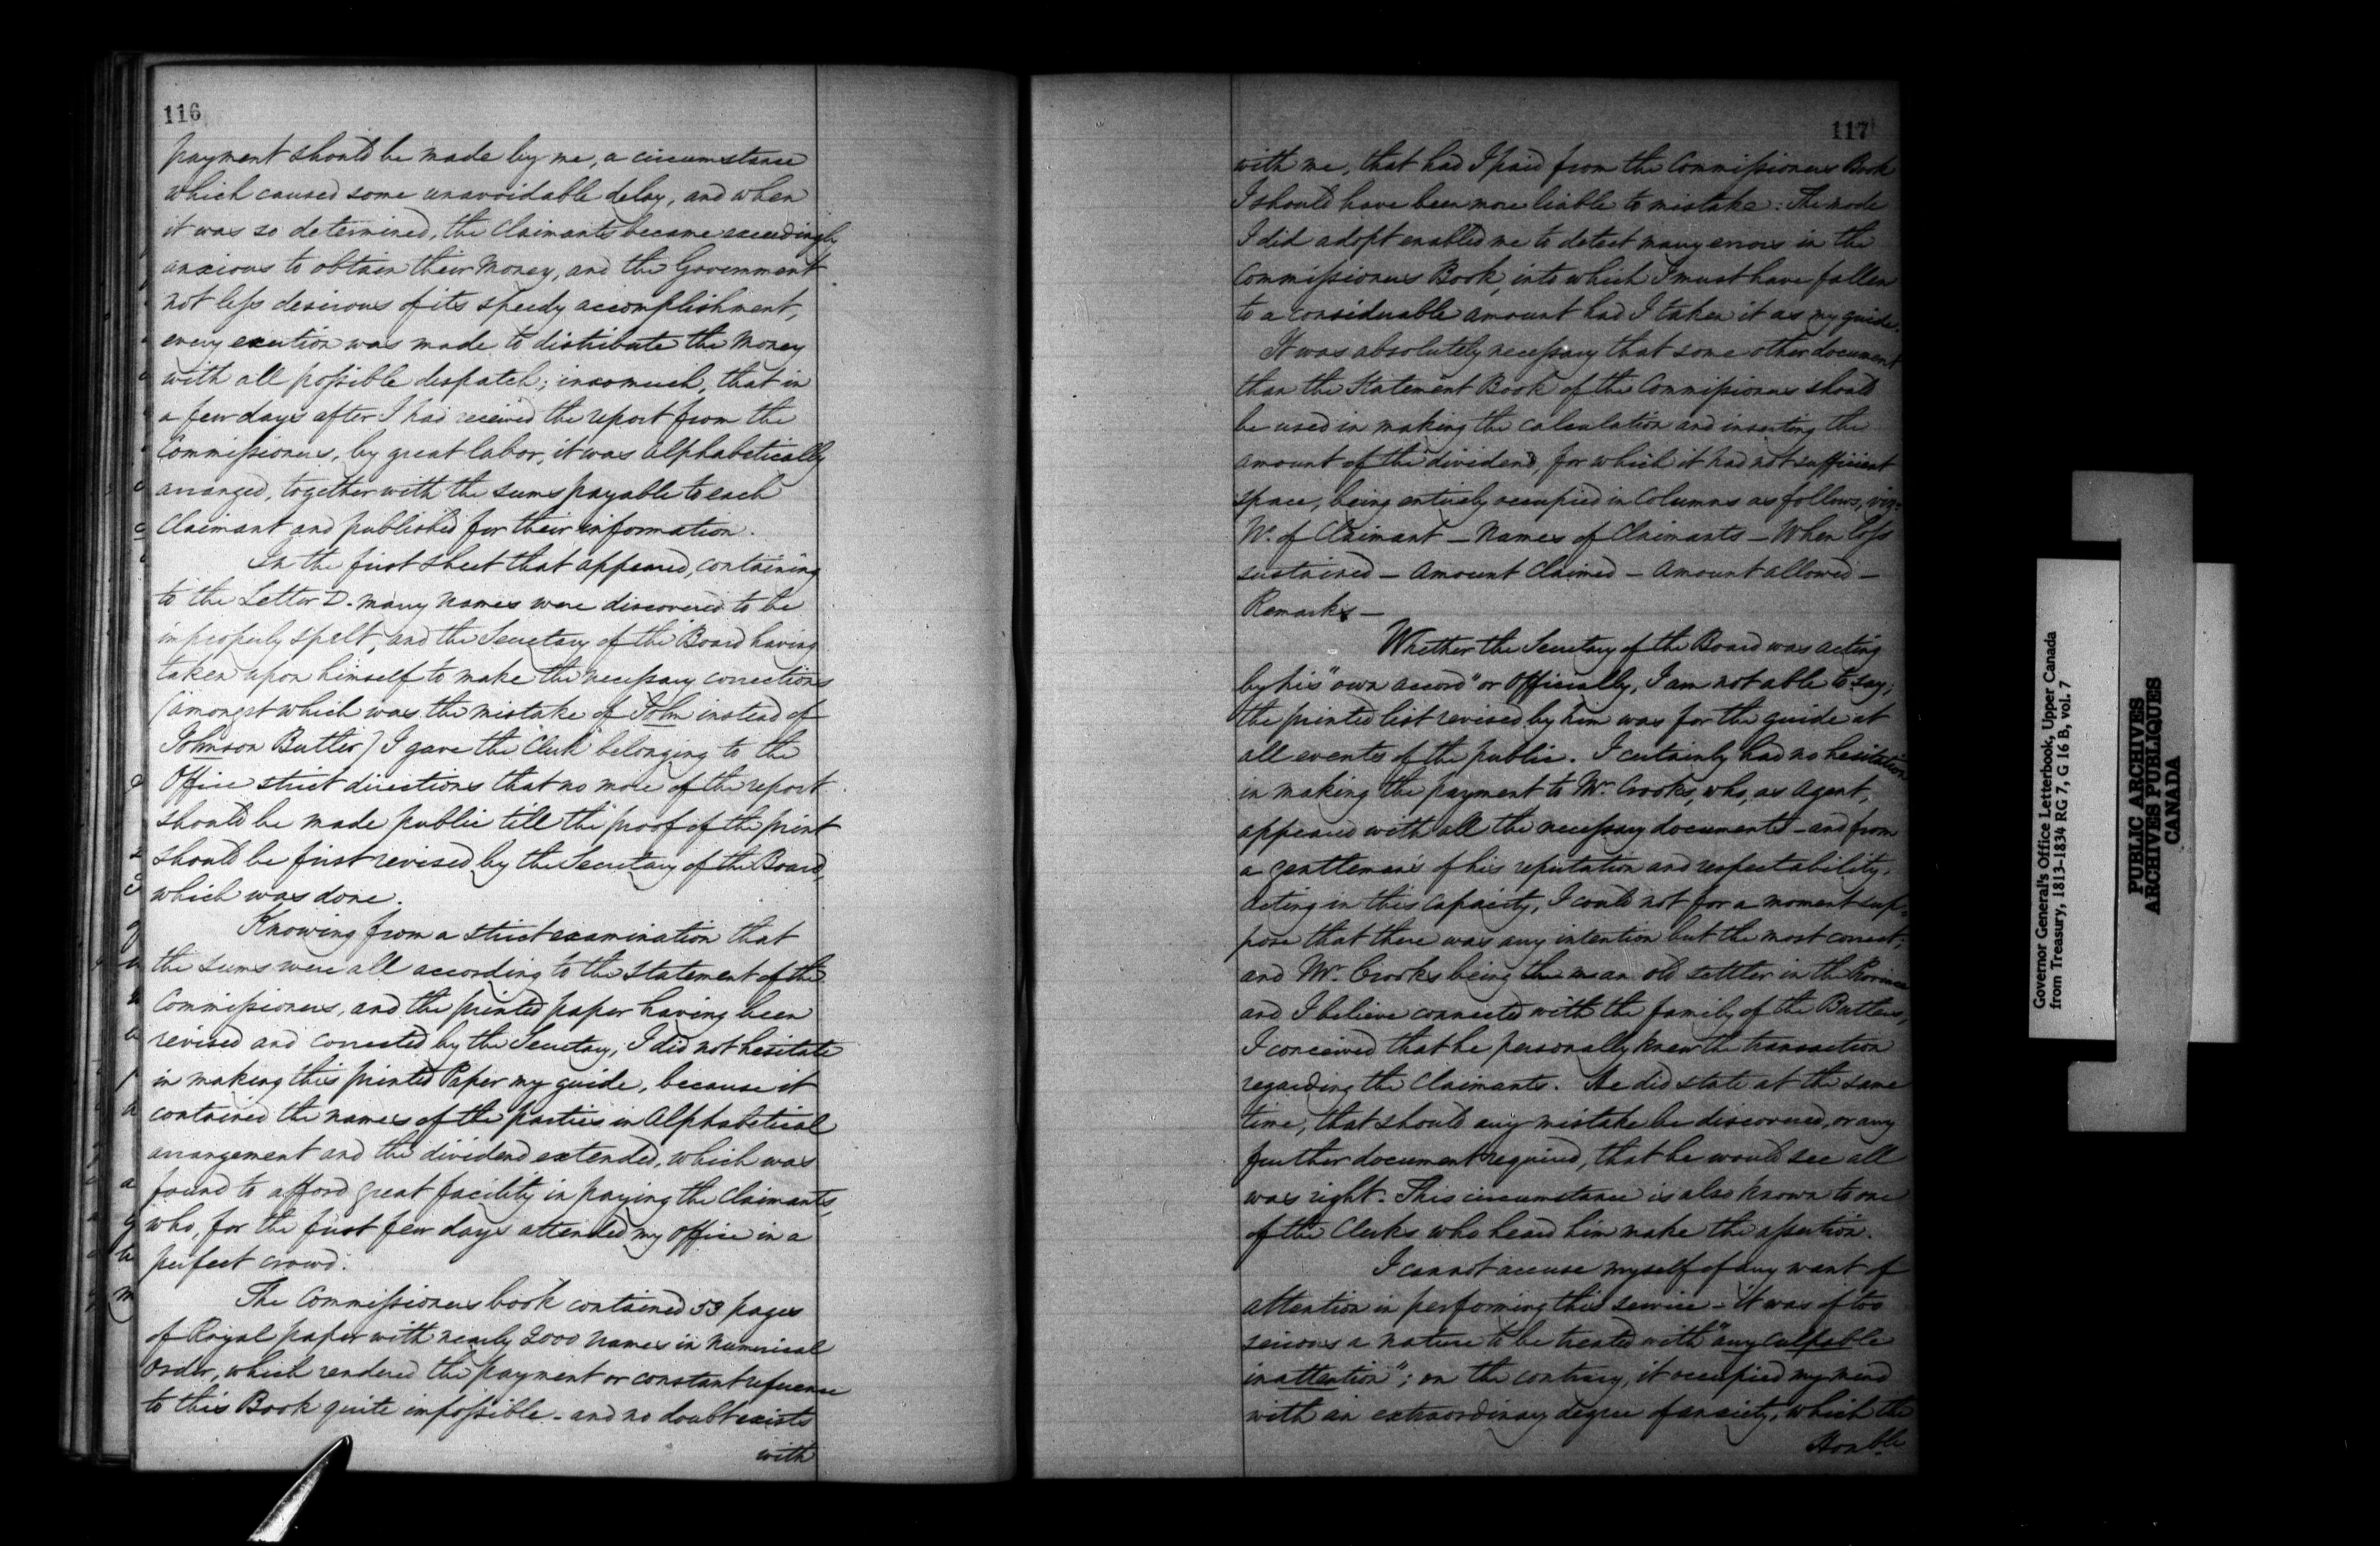 116
payment should be made by me, a circumstance
which caused some unavoidable delay, and when
it was so determined, the Claimants became exceedingly
anxious to obtain their Money, and the Government
not less desirous of its speedy accomplishment,
every exertion was made to distribute the Money
with all possible despatch; insomuch, that in
a few days after I had received the report from the
Commissioners, by great labor, it was Alphabetically
arranged, together with the sums payable to each
Claimant and published for their information.
In the first sheet that appeared, containing
to the Letter D. many names were discovered to be
improperly spelt, and the Secretary of the Board having
taken upon himself to make the necessary corrections
(amongst which was the mistake of John instead of
Johnson Butler) I gave the Clerk belonging to the
Office strict directions that no more of the report
should be made public till the proof of the print
should be first revised by the Secretary of the Board,
which was done.
Knowing from a strict examination that
the sums were all according to the statement of the
Commissioners, and the printed paper having been
revised and corrected by the Secretary, I did not hesitate
in making this printed Paper my guide, because it
contained the names of the parties in Alphabetical
arrangement and the dividend extended, which was
found to afford great facility in paying the Claimants,
who, for the first few days attended my Office in a
perfect crowd.
The Commissioners book contained 53 pages
of Royal paper with nearly 2000 names in Numerical
Order, which rendered the payment or constant reference
to this Book quite impossible - and no doubt exists
with
117
with me, that had I paid from the Commissioners Book
I should have been more liable to mistake: The mode
I did adopt enabled me to detect many errors in the
Commissioners Book, into which I must have fallen
to a considerable amount had I taken it as my guide.
It was absolutely necessary that some other document
than the Statement Book of the Commissioners should
be used in making the calculation and inserting the
amount of the dividend, for which it had not sufficient
space, being entirely occupied in Columns as follows, viz:
No. of Claimant - Names of Claimants - When loss
sustained - Amount Claimed - Amount allowed -
Remarks -
Whether the Secretary of the Board was acting
by his "own accord" or Officially, I am not able to say;
the printed list revised by him was for the guide at
all events of the public. I certainly had no hesitation
in making the payment to Mr. Crooks, who, as Agent,
appeared with all the necessary documents - and from
a gentleman's of his reputation and respectability,
acting in this capacity, I could not for a moment sup-
pose that there was any intention but the most correct;
and Mr. Crooks being an old settler in the Province
and I believe connected with the family of the Butlers,
I conceived that he personally knew the transaction
regarding the Claimants. He did state at the same
time, that should any mistake be discovered, or any
further document required, that he would see all
was right. This circumstance is also known to one
of the Clerks who heard him make the assertion.
I cannot accuse myself of any want of
attention in performing this service - it was of too
serious a nature to be treated with "any culpable
inattention"; on the contrary, it occupied my mind
with an extraordinary degree of anxiety, which the
Honble.
Governor General's Office Letterbook, Upper Canada
from Treasury, 1813-1834 RG 7, G 16 B, vol. 7
PUBLIC ARCHIVES
ARCHIVES PUBLIQUES
CANADA